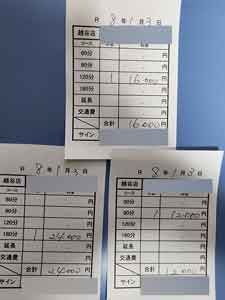 8年1月3日
越谷店
コース
60分 円
90分 円
120分 1 16.000円
180分 円
延長 円
交通費 円
合計 16.000円
サイン
8年1月3日
越谷店
コース
60分 円
90分 円
180分 1 24.000円
延長 円
交通費 円
合計 24.000円
サイン
8年1月3日
越谷店
コース
60分 円
90分 1 12.000円
180分 円
延長 円
交通費 円
合計 12.000円
サイン